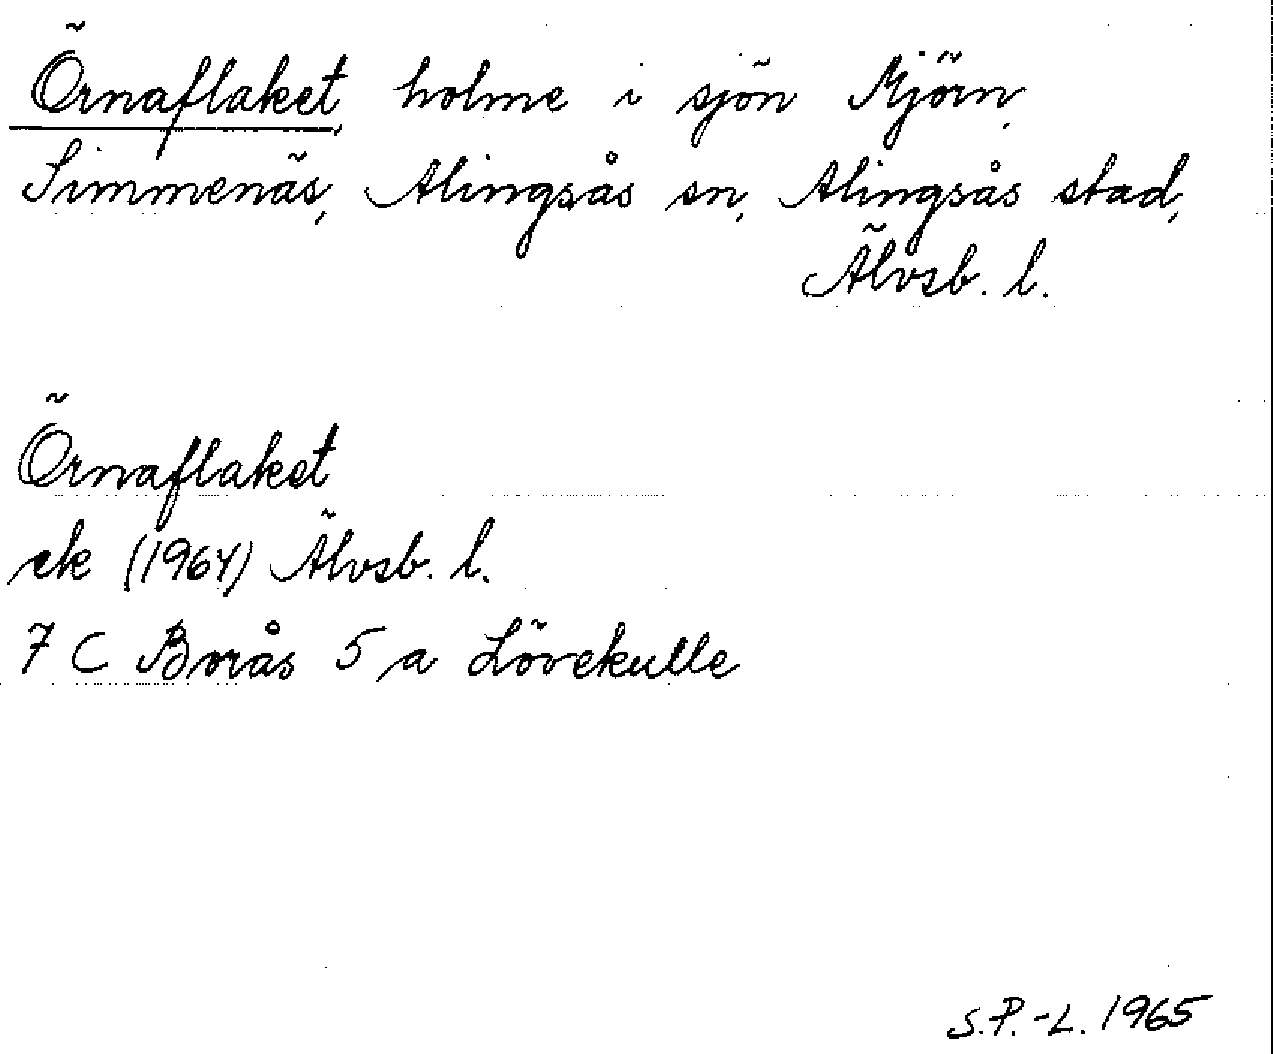 Örnaflaket, holme i sjön Mjörn,
Simmenäs, Alingsås sn, Alingsås stad,
Älvsb. l.
Örnaflaket
ek (1964) Älvsb. l.
7 C Borås 5 a Lövekulle
S.P.-L. 1965